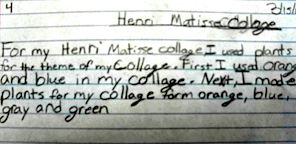 4
Henri Matisse Collage
For my Henri Matisse collage I used plants
for the theme of my collage. First I used orang
and blue in my collage. Next, I made
plants for my collage form orange, blue,
gray and green